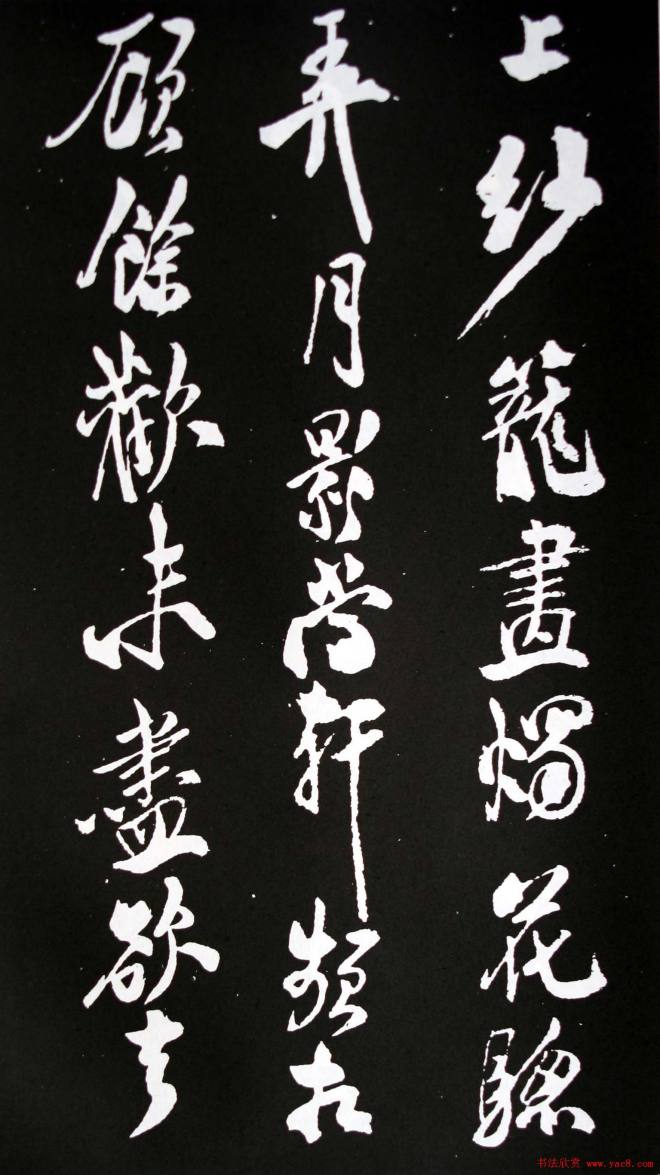 上紗籠畫燭花驄
弄月影當軒頻相
顧餘歡未盡欲去
书法欣赏 www.yac8.com